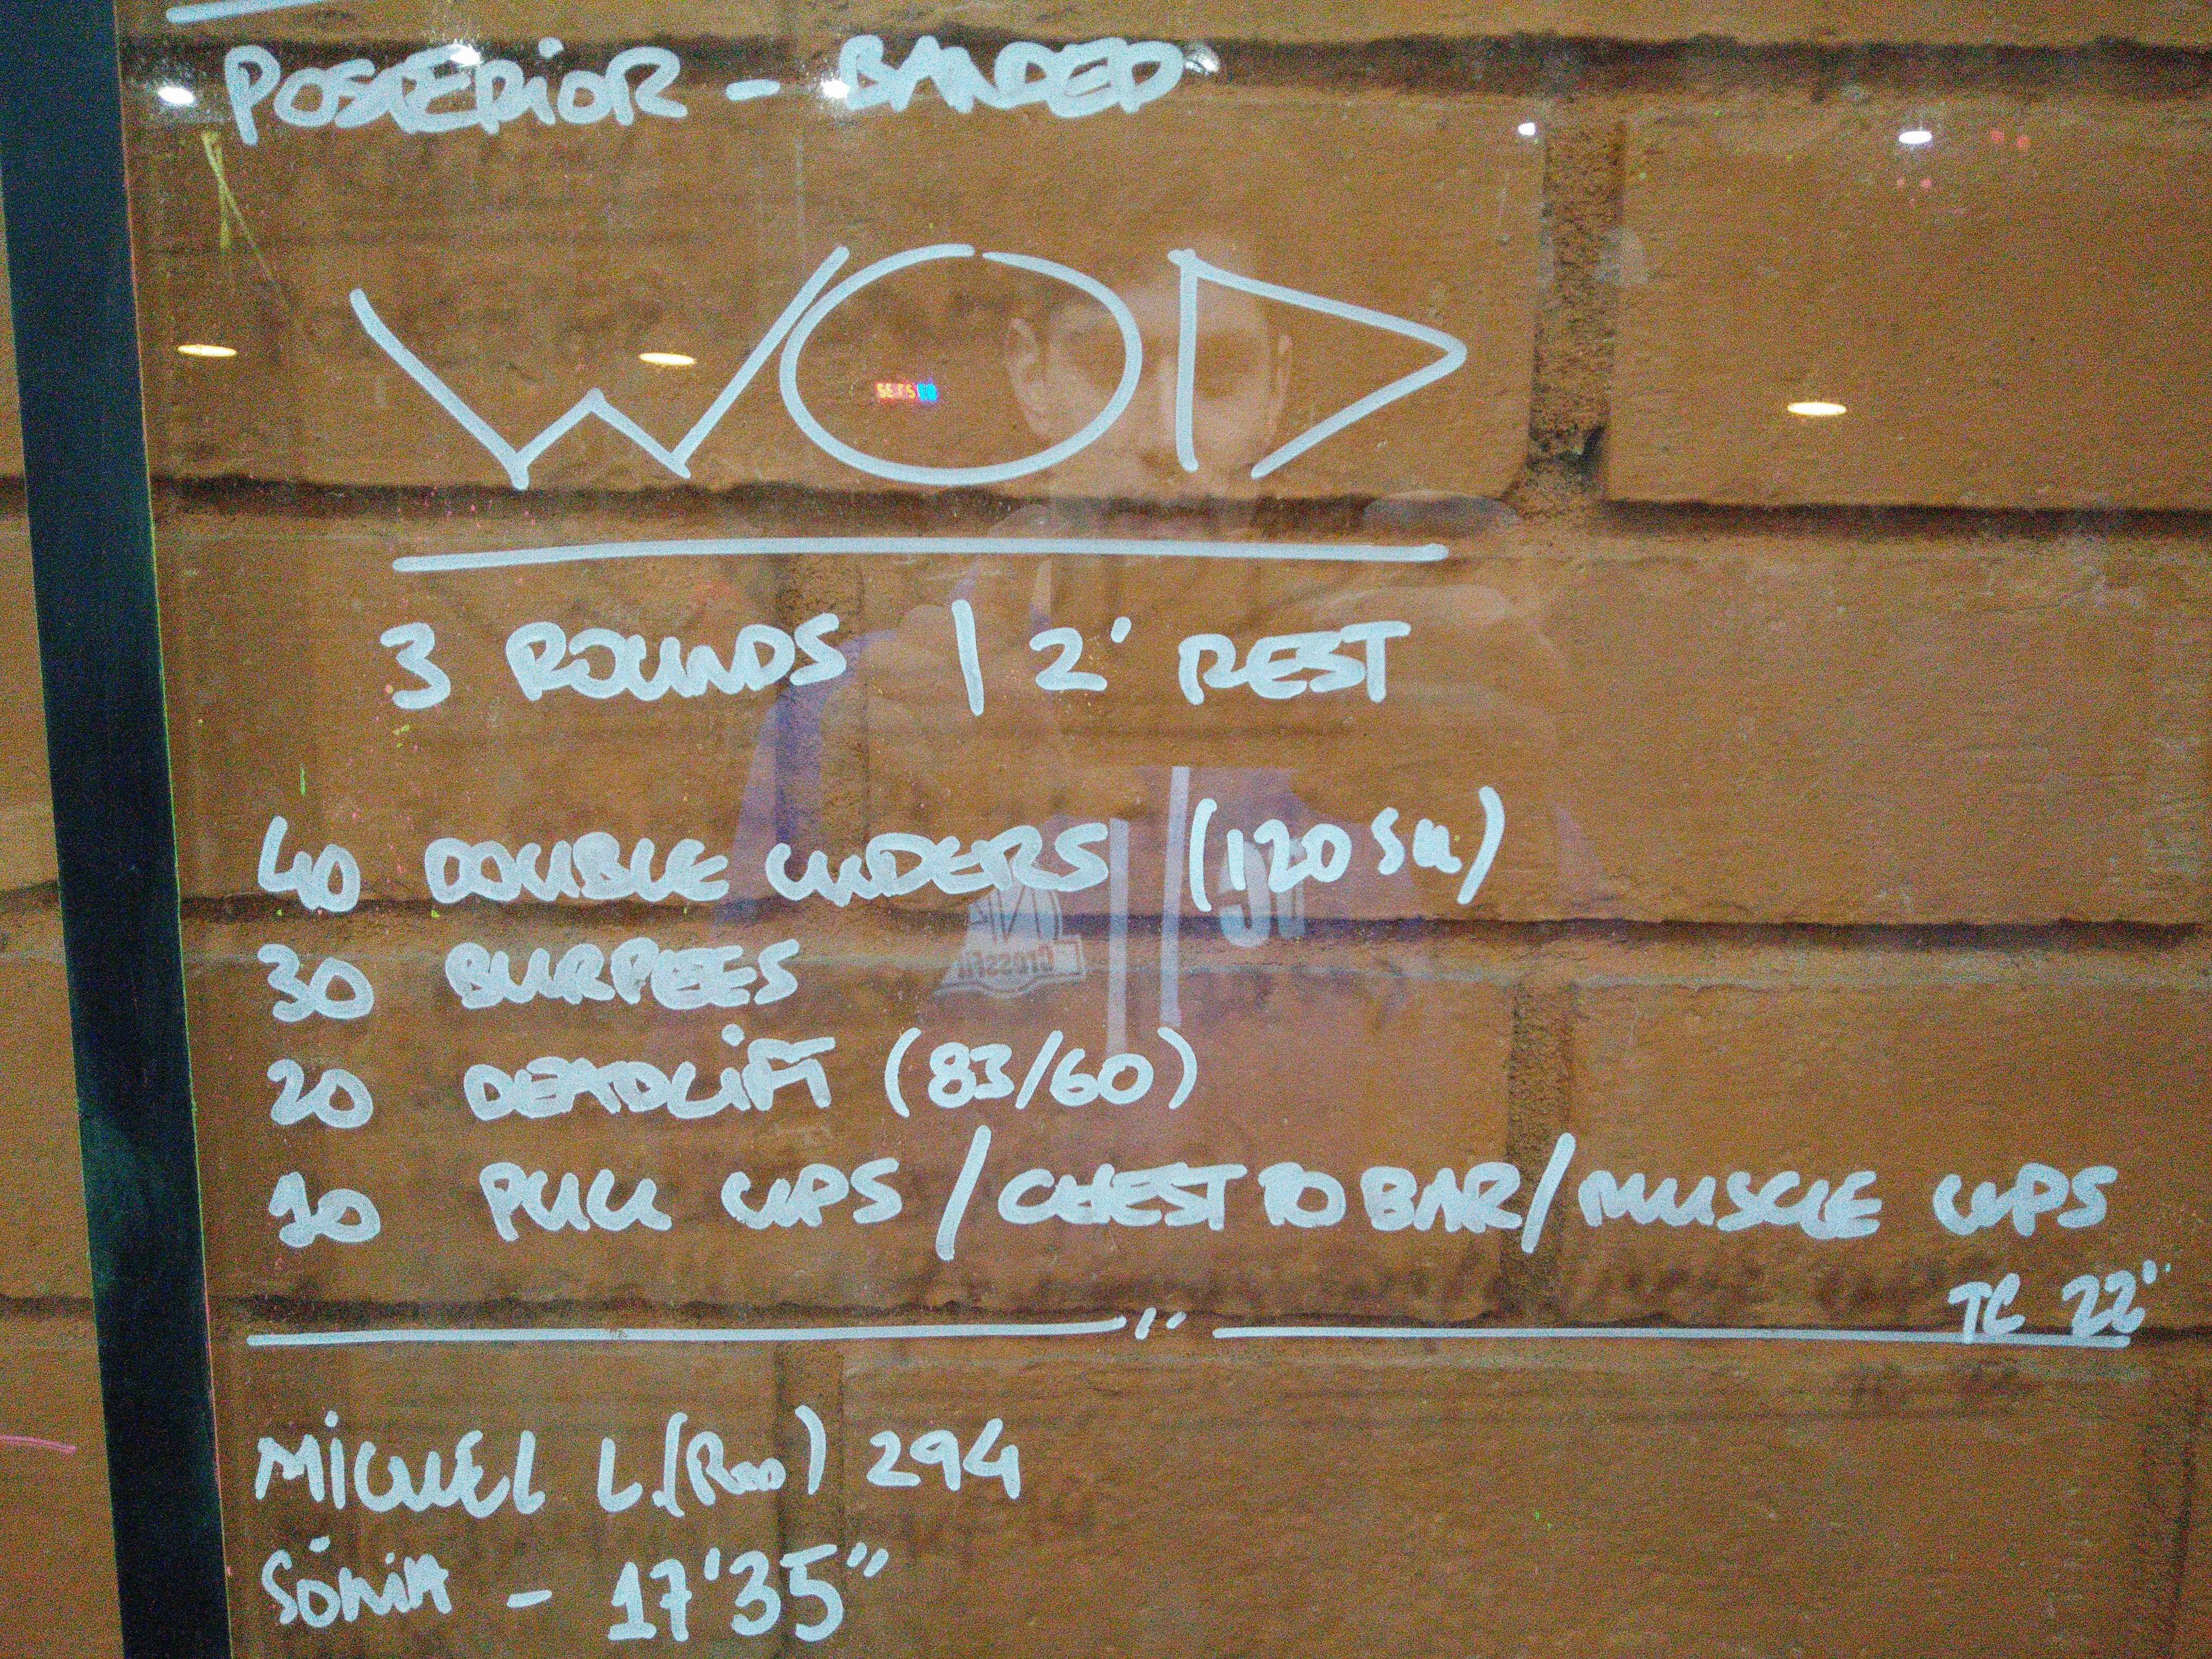 POSTERIOR - BANDED
WOD
3 ROUNDS | 2' REST
40 DOUBLE UNDERS (120 SU)
30 BURPEES
20 DEADLIFT (83/60)
10 PULL UPS / CHEST TO BAR / MUSCLE UPS
TC 22'
MIGUEL L. 294
SÓNIA - 17'35"
CrossFit